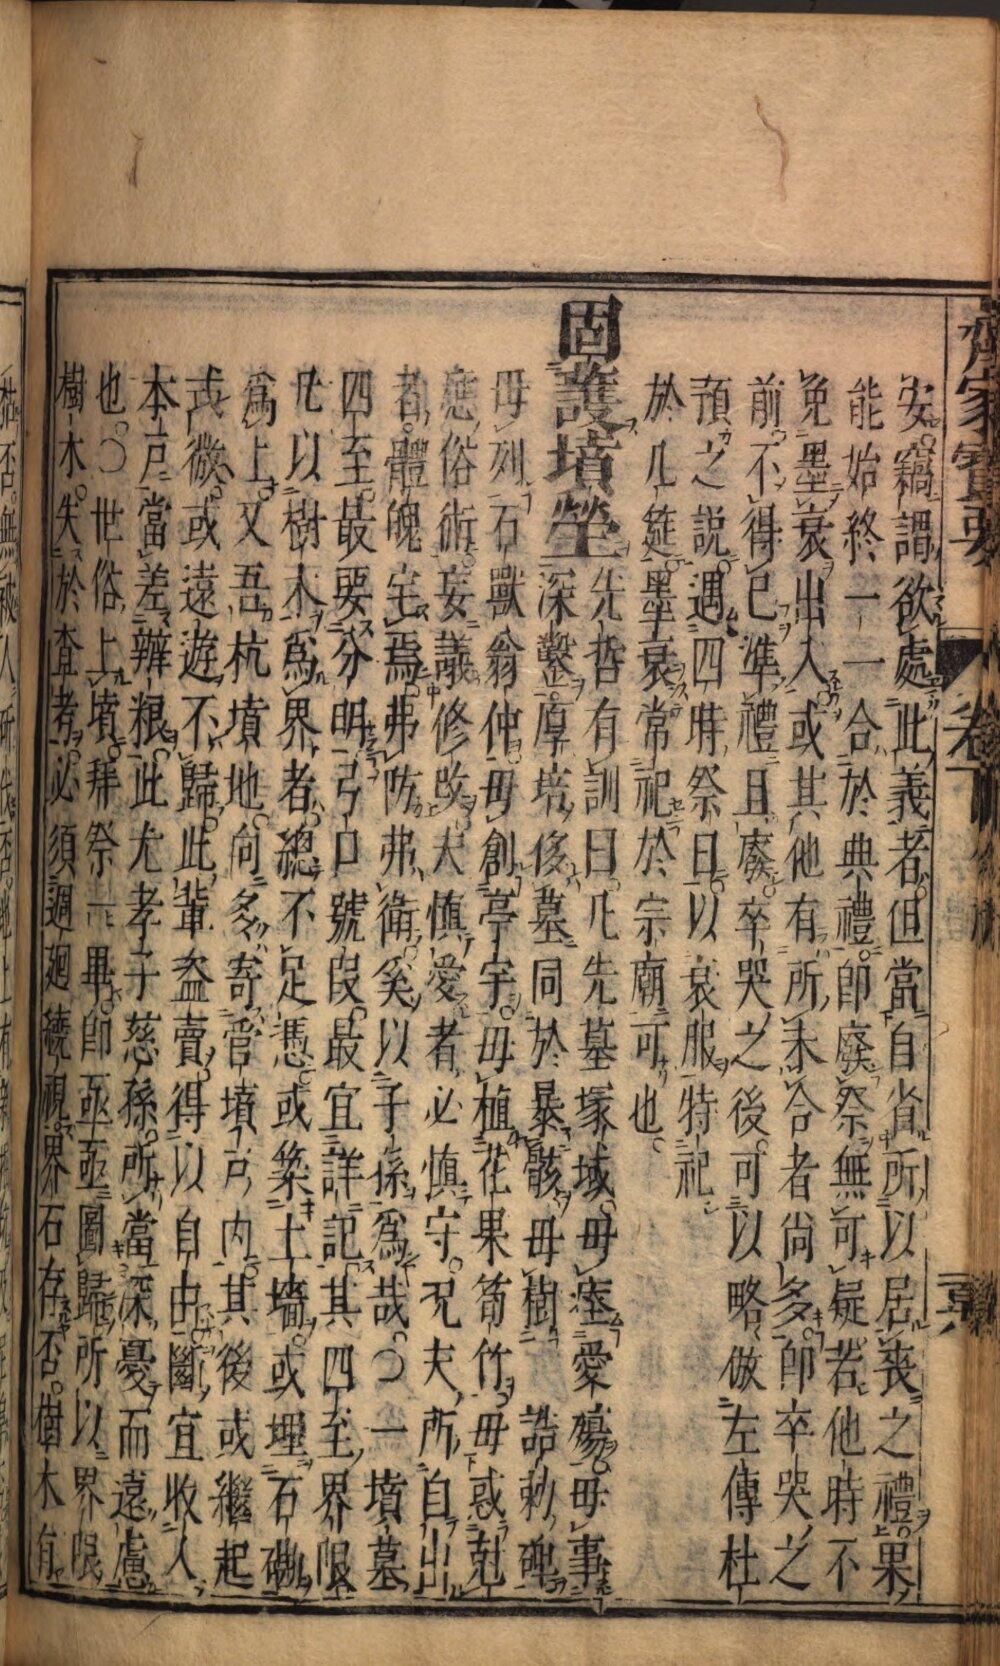 齊家寶要
卷下
安竊謂欲處此義者但當自省所以居喪之禮果
能始終一一合於典禮即廢祭無可疑若他時不
免墨衰出入或其他有所未合者尚多即卒哭之
前不得已準禮且廢卒哭之後可以略倣左傳杜
預之說遇四時祭日以衰服特祀
於几筵墨衰常祀於宗廟可也
固護墳塋
先哲有訓曰凡先墓塚域毋瘞愛殤毋事
深鑿厚培侈墓同於暴骸毋樹誥勅碑
毋列石獸翁仲毋創亭宇毋植花果筍竹毋惑剋
應俗術妄議修改夫慎愛者必慎守况夫所自出
者體魄宅焉弗防弗衛奚以子孫爲哉○一墳墓
四至最要分明弓口號段最宜詳記其四至界限
凡以樹木爲界者總不足憑或築土墻或埋石磡
爲上又吾杭墳地尚多寄管墳戶内其後或繼起
式微或遠遊不歸此輩盜賣得以自由斷宜收入
本戶當差辦粮此尤孝子慈孫所當深憂而遠慮
也○世俗上墳拜祭一畢即亟亟圖歸所以界限
樹木失於查考必須週廻繞視界石存否樹木有